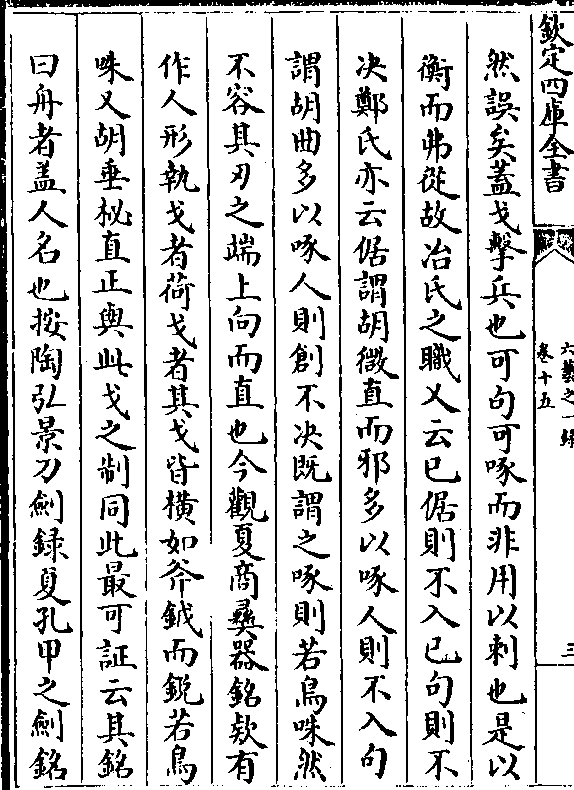 欽定四庫全書
六藝之一録
卷十五
三
然誤矣蓋戈擊兵也可句可啄而非用以刺也是以
衡而弗從故冶氏之職乂云已倨則不入已句則不
决鄭氏亦云倨謂胡微直而邪多以啄人則不入句
謂胡曲多以啄人則創不决既謂之啄則若鳥咮然
不容其刃之端上向而直也今觀夏商彞器銘欵有
作人形執戈者荷戈者其戈皆横如斧鉞而鋭若鳥
咮又胡垂柲直正與此戈之制同此最可証云其銘
曰舟者盖人名也按陶弘景刀劍録夏孔甲之劍銘